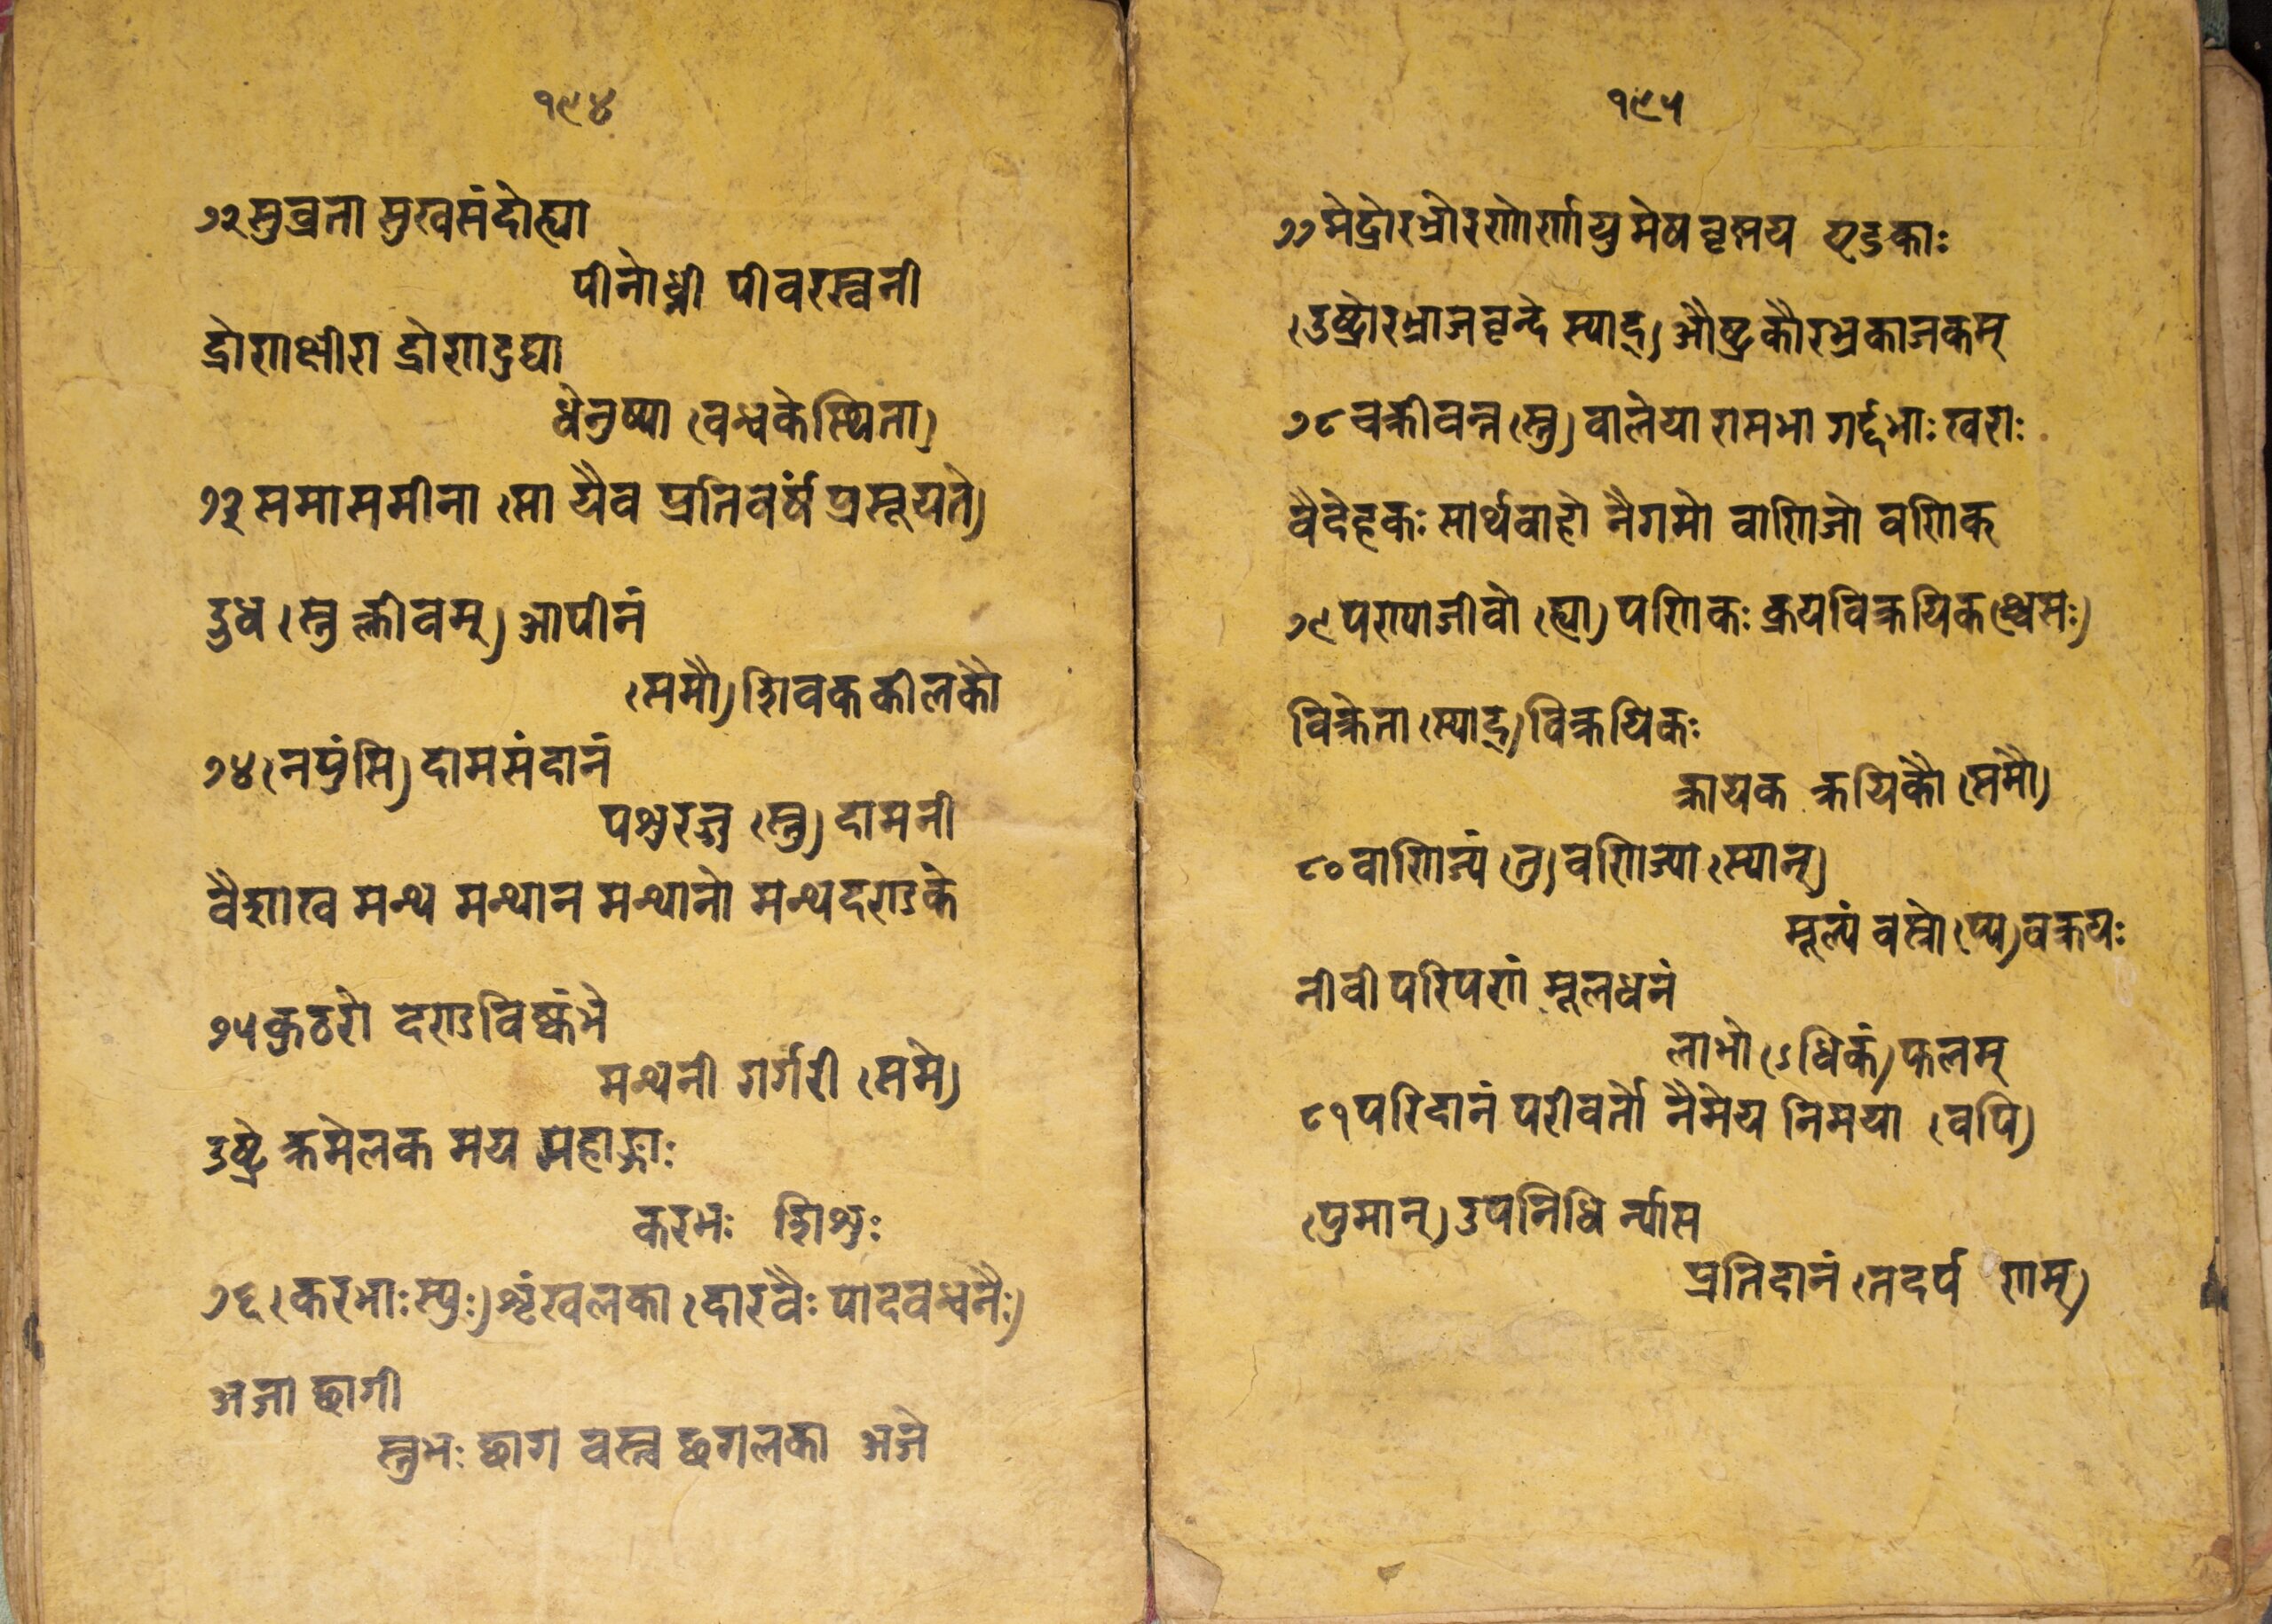 १९४
७२ सुव्रता सुखसंदोह्या
पीनोध्नी पीवरस्तनी
द्रोणक्षीरा द्रोणदुघा
धेनुष्या (बन्धके स्थिता)
७३ समांसमीना (सा यैव प्रतिवर्षं प्रसूयते)
ऊध (स्तु क्लीबम्) आपीनं
(समौ) शिवककीलकौ
७४ (न पुंसि) दामसंदानं
पशुरज्जु (स्तु) दामनी
वैशाख मन्थ मन्थान मन्थानो मन्थदण्डके
७५ कुठरो दण्डविष्कंभे
मन्थनी गर्गरी (समे)
उष्ट्रे क्रमेलक मय महाङ्गाः
करभः शिशुः
७६ (करभाः स्युः) शृंखलका (दारवैः पादबन्धनैः)
अजा छागी
स्तुभः छाग वस्त छगलका अजे
१९५
७७ मेढ्रोरभ्रोरणोर्णायु मेष वृष्णय एडकाः
(उष्ट्रोरभ्राजवृन्दे स्याद्) औष्ट्रकौरभ्रकाजकम्
७८ चक्रीवन्त (स्तु) वालेया रासभा गर्द्दभाः खराः
वैदेहकः सार्थवाहो नैगमो वाणिजो वणिक्
७९ पण्याजीवो (ह्या) पणिकः क्रयविक्रयिक (श्च सः)
विक्रेता (स्याद्) विक्रयिकः
क्रायक क्रयिकौ (समौ)
८० वाणिज्यं (तु) वणिज्या (स्यान्)
मूल्यं वस्नो (प्य) वक्रयः
नीवी परिपणं मूलधनं
लाभो (ऽधिकं) फलम्
८१ परिदानं परीवर्तो नैमेय निमया (वपि)
(पुमान्) उपनिधि र्न्यास
प्रतिदानं (तदर्प णम्)